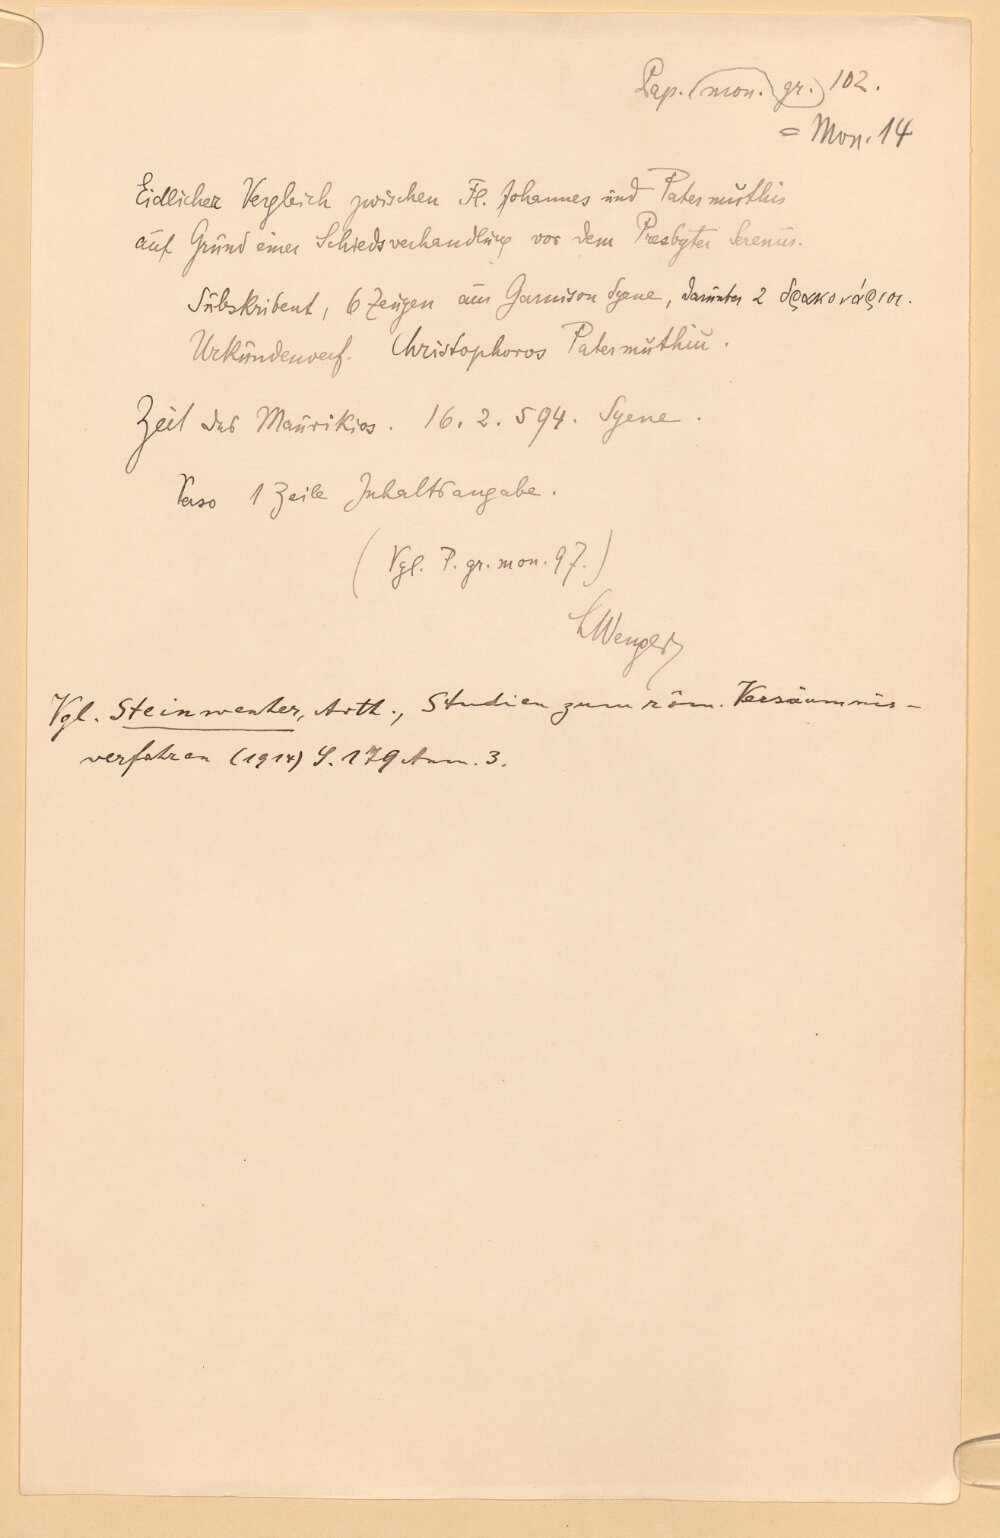 Pap. (mon. gr.) 102.
= Mon. 14
Eidlicher Vergleich zwischen Fl. Johannes und Patermuthis
auf Grund einer Schiedsverhandlung vor dem Presbyter Serenus.
Subskribent, 6 Zeugen aus Garnison Syene, darunter 2 δρακονάριοι.
Urkundenverf. Christophoros Patermuthiu.
Zeit des Maurikios. 16. 2. 594. Syene.
Verso 1 Zeile Inhaltsangabe.
(Vgl. P. gr. mon. 97.)
LWenger
Vgl. Steinwenter, Arth., Studien zum röm. Versäumnis-
verfahren (1914) S. 179 Anm. 3.